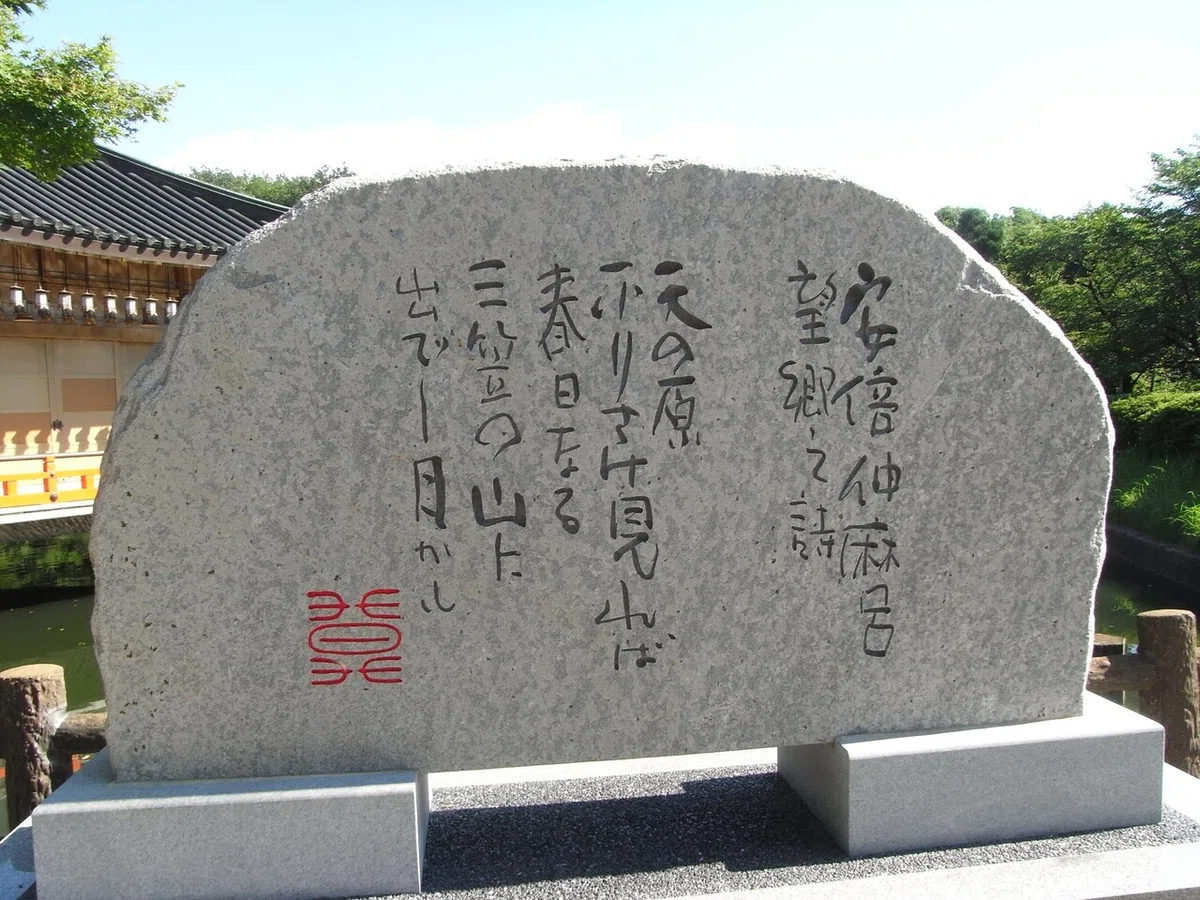 安倍仲麻呂
望郷之詩
天の原
不りさけ見れば
春日なる
三笠の山に
出でし月かも